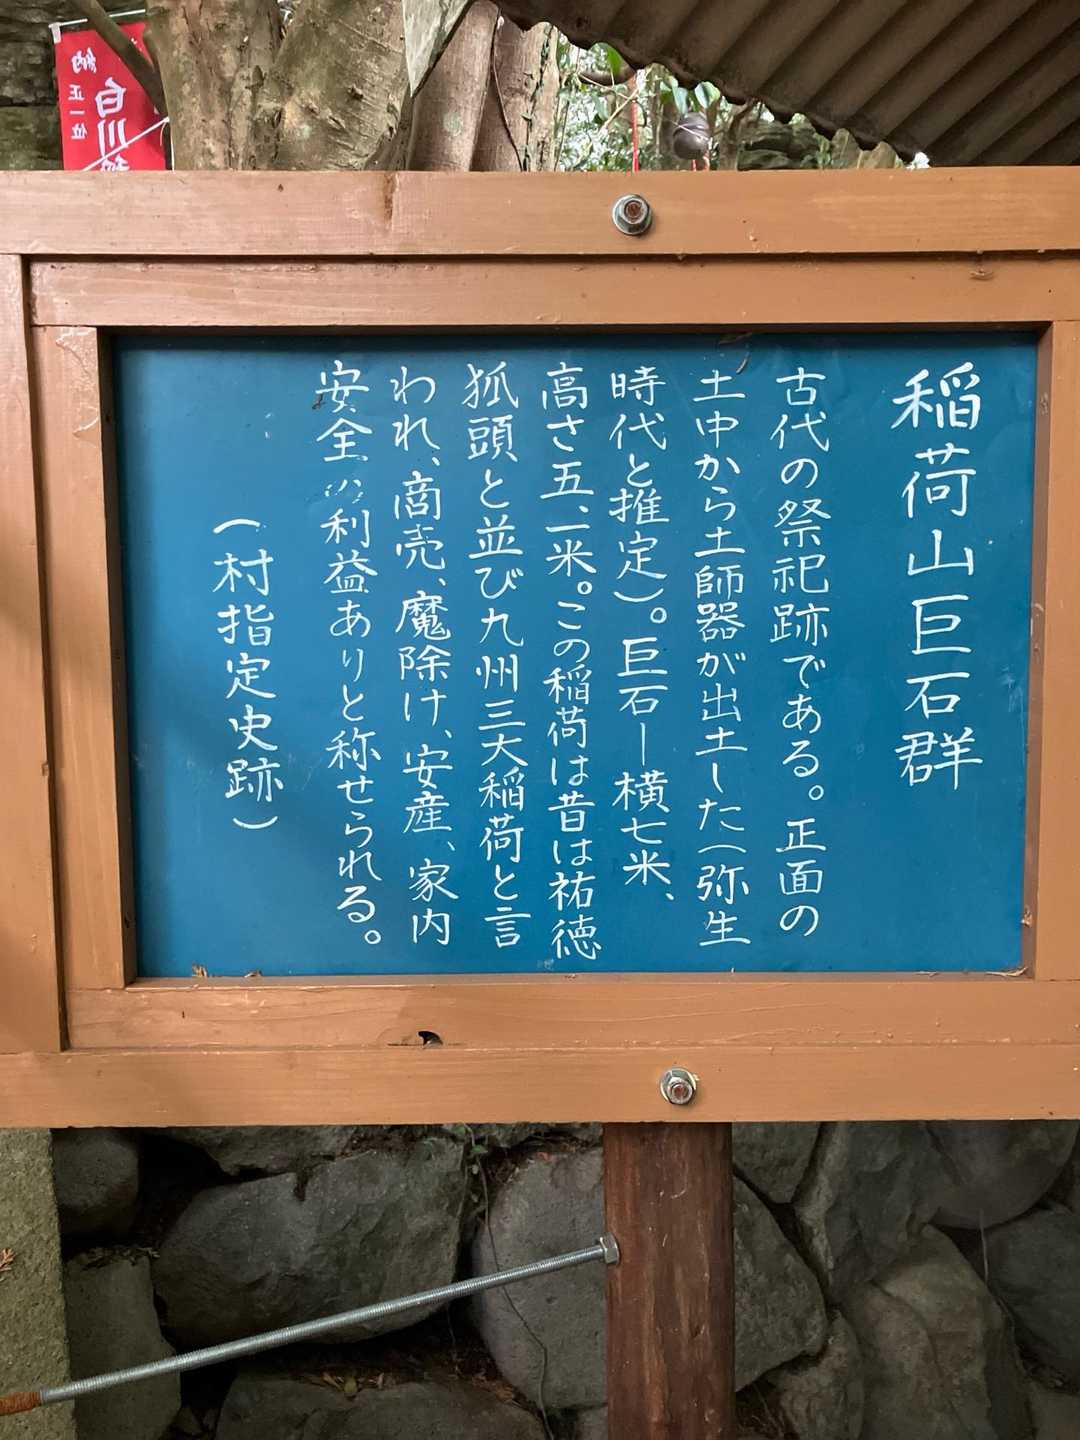 稲荷山巨石群
古代の祭祀跡である。正面の
土中から土師器が出土した(弥生
時代と推定)。巨石ー横七米、
高さ五、一米。この稲荷は昔は祐徳
狐頭と並び九州三大稲荷と言
われ、商売、魔除け、安産、家内
安全の利益ありと称せられる。
(村指定史跡)
納
正一位
白川